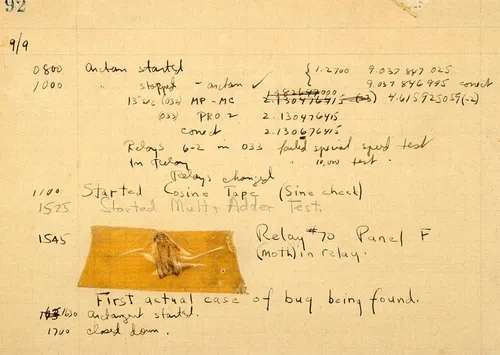 92
9/9
0800 Antan started
1000 " stopped - antan ✓ { 1.2700 9.037 847 025
9.037 846 995 conect
13"uc (032) MP - MC 2.130476415 4.615925059(-2)
(033) PRO 2 2.130476415
conect 2.130676415
Relays 6-2 in 033 failed special speed test
in Relay " 10,000 test.
Relays changed
1100 Started Cosine Tape (Sine check)
1525 Started Mult + Adder Test.
1545 Relay #70 Panel F
(moth) in relay.
First actual case of bug being found.
1630 antangent started.
1700 closed down.